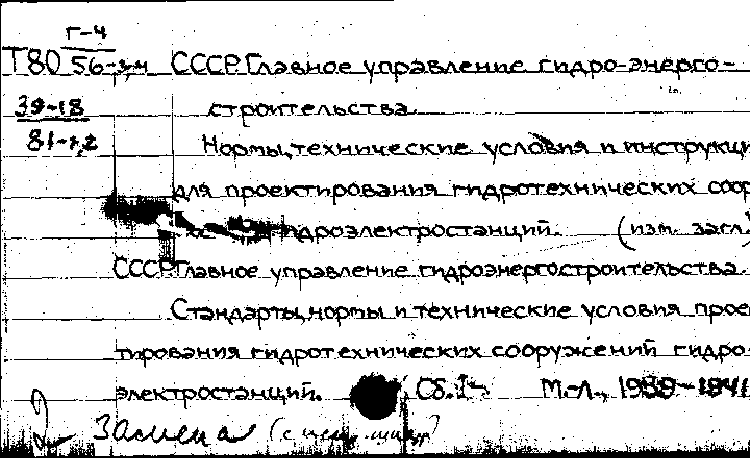 Г-4
Т80 56-3,4 СССР. Главное управление гидро-энерго-
39-18 строительства.
81-1,2 Нормы, технические условия и инструкци
для проектирования гидротехнических соор
гидроэлектростанций. (изм. загл.)
СССР. Главное управление гидроэнергостроительства.
Стандарты, нормы и технические условия прое
тирования гидротехнических сооружений гидро-
электростанций. Сб. 1- М.-Л., 1939-1941
Замена (с